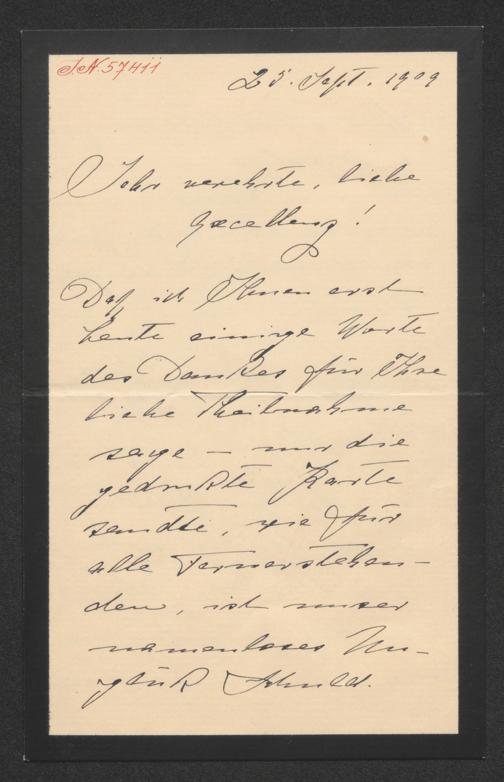 J.N. 57411
25. Sept. 1909
Sehr verehrte, liebe
Excellenz!
Daß ich Ihnen erst
heute einige Worte
des Dankes für Ihre
liebe Theilnahme
sage – nur die
gedrukte Karte
sandte, wie für
alle Fernerstehen-
den, ist unser
namenloses Un-
glük Schuld.